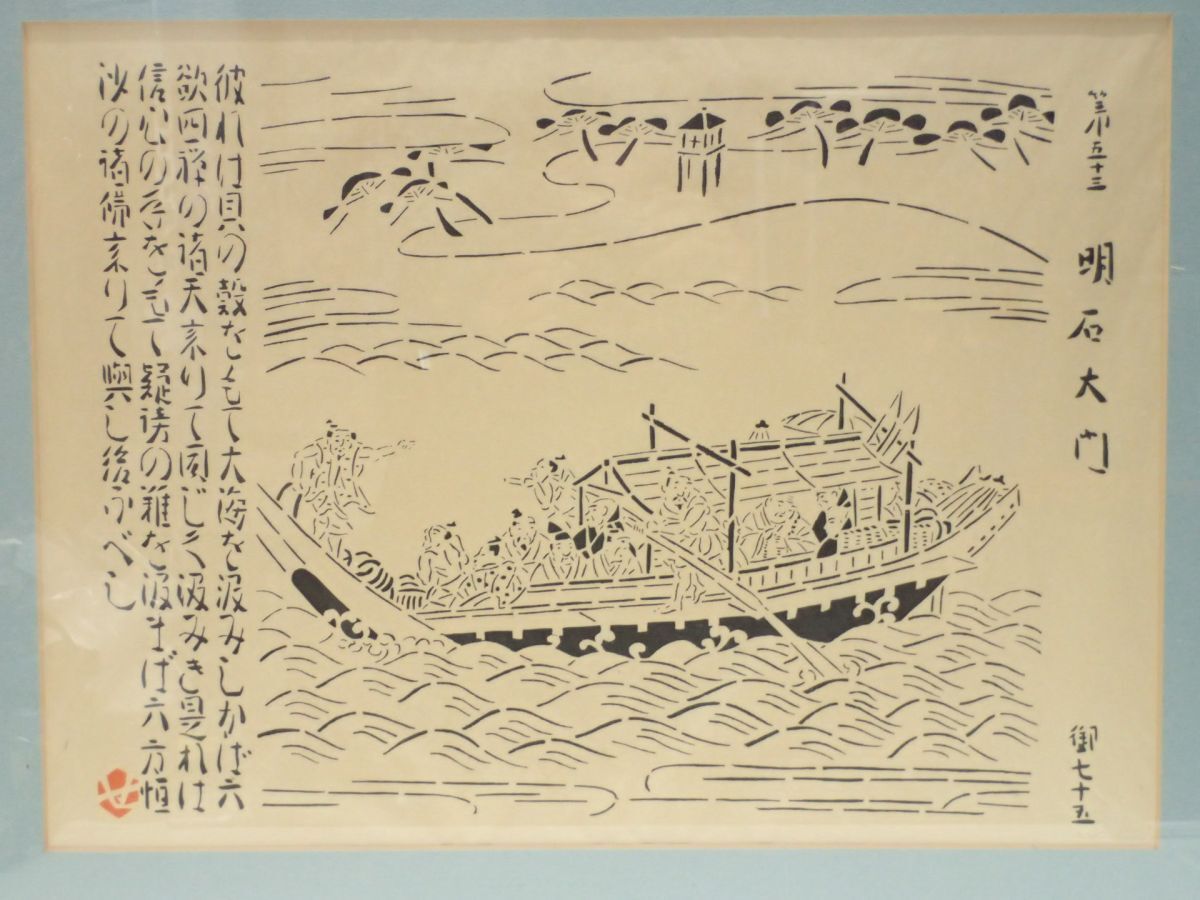 第五十三　明石大門
御七十五
彼れは貝の殻をもて大海を汲みしかば六
欲四禅の諸天来りて同じく汲みき是れは
信心の手をもて疑謗の難を汲まば六方恒
沙の諸佛来りて與し給ふべし